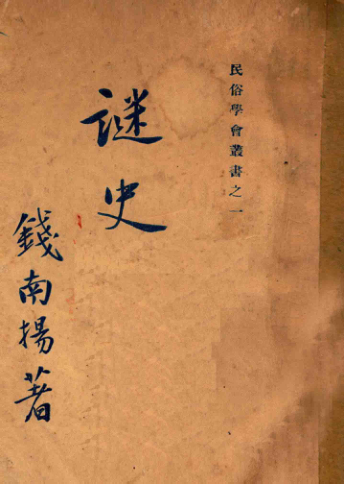 民俗學會叢書之一
謎史
錢南揚著